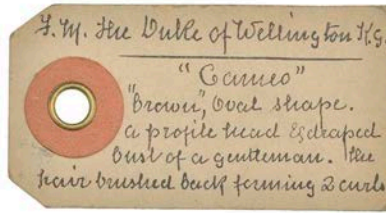 F. M. The Duke of Wellington K.G.
"Cameo"
"Brown", Oval shape.
a profile head & draped
bust of a gentleman. The
hair brushed back forming 2 curls